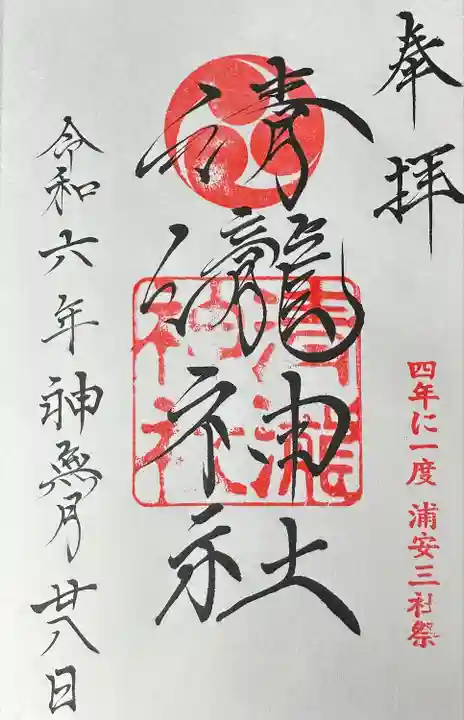 奉拝
四年に一度 浦安三社祭
清瀧神社
清瀧神社
令和六年神無月廿八日